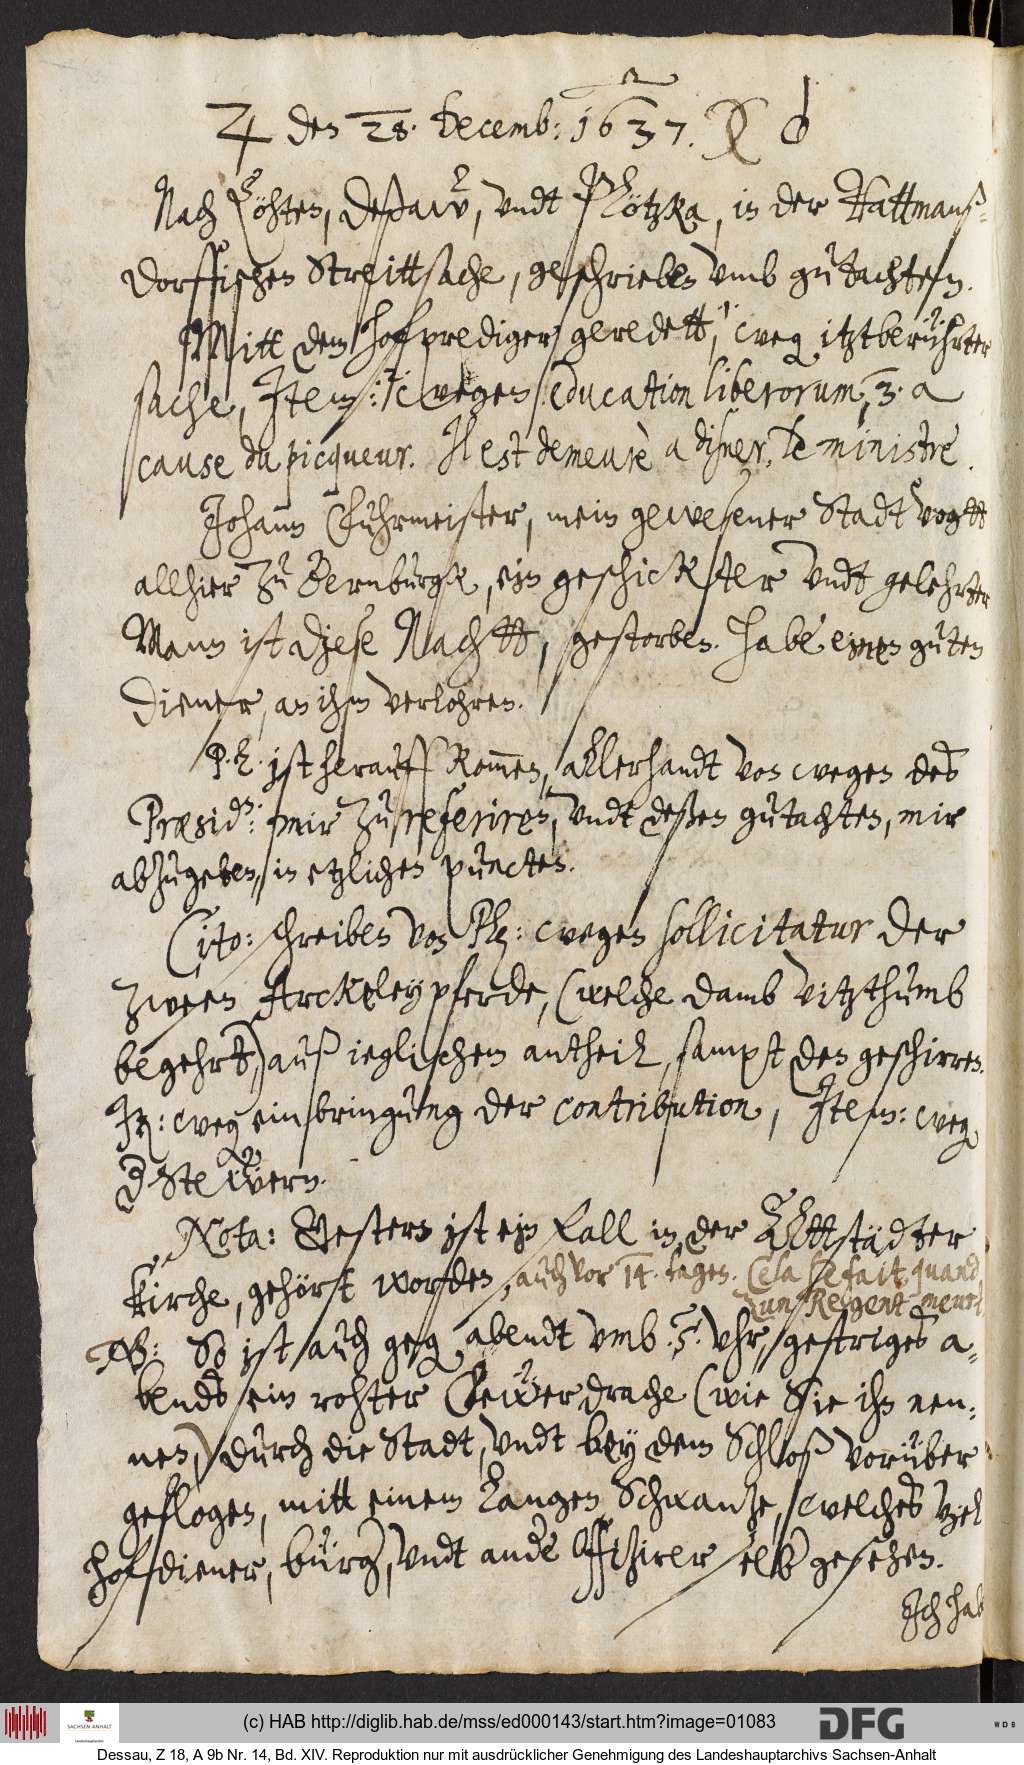 ♃ den 28. Decemb: 1637. ♂
Nach Cöhten, Deßaw, vndt Plötzka, in der Hattmanß-
dorffischen Streittsache, geschrieben vmb gutachten.
Mitt dem hofprediger geredett, 1. weg itztberührter
sache, Item: 2. wegen education liberorum, 3. a
cause du picqueur. Il est demeurè a disner, le ministre.
Johann Fuhrmeister, mein gewesener Stadtvogtt
allhier zu Bernburgk, ein geschickter vndt gelehrter
Mann ist diese Nachtt, gestorben. habe einen guten
diener, an ihm verlohren.
P. L. ist herauff kommen, allerhandt von wegen des
Præsid: mir zu referiren, vndt deßen gutachten, mir
abzugeben, in etzlichen puncten.
Cito: schreiben von Plz: wegen sollicitatur der
zween Arckeleypferde, (welche damb Vitzthumb
begehrt,) auß ieglichem antheil, sampt den geschirren.
It: weg einbringung der contribution, Item: weg
d Stewern.
Nota: Gestern ist ein Fall in der Altstädter
kirche, gehört worden, auch vor 14. tagen. Cela se fait, quand
un Regent meurt
NB: So ist auch geg abendt vmb .5. vhr, gestriges a-
bends ein rohter Fewerdrache (wie Sie ihn nen-
nen,) durch die Stadt, vndt bey dem Schloß vorüber
geflogen, mitt einem langen Schwantze, welches viel
hofdiener, bürg, vndt ande Offizirer selb gesehen.
Ich hab
(c) HAB http://diglib.hab.de/mss/ed000143/start.htm?image=01083
SACHSEN-ANHALT
DFG
WDB
Dessau, Z 18, A 9b Nr. 14, Bd. XIV. Reproduktion nur mit ausdrücklicher Genehmigung des Landeshauptarchivs Sachsen-Anhalt